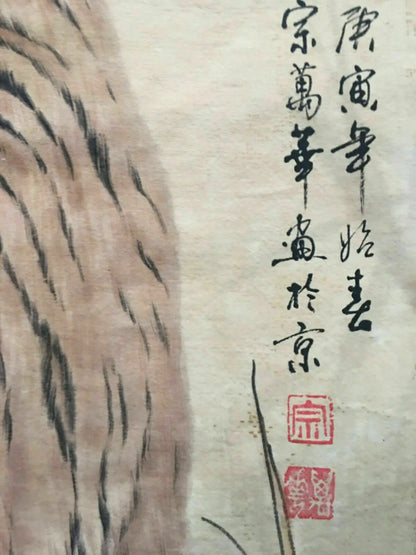 庚寅年始春
宗萬華畫於京
宗
萬華